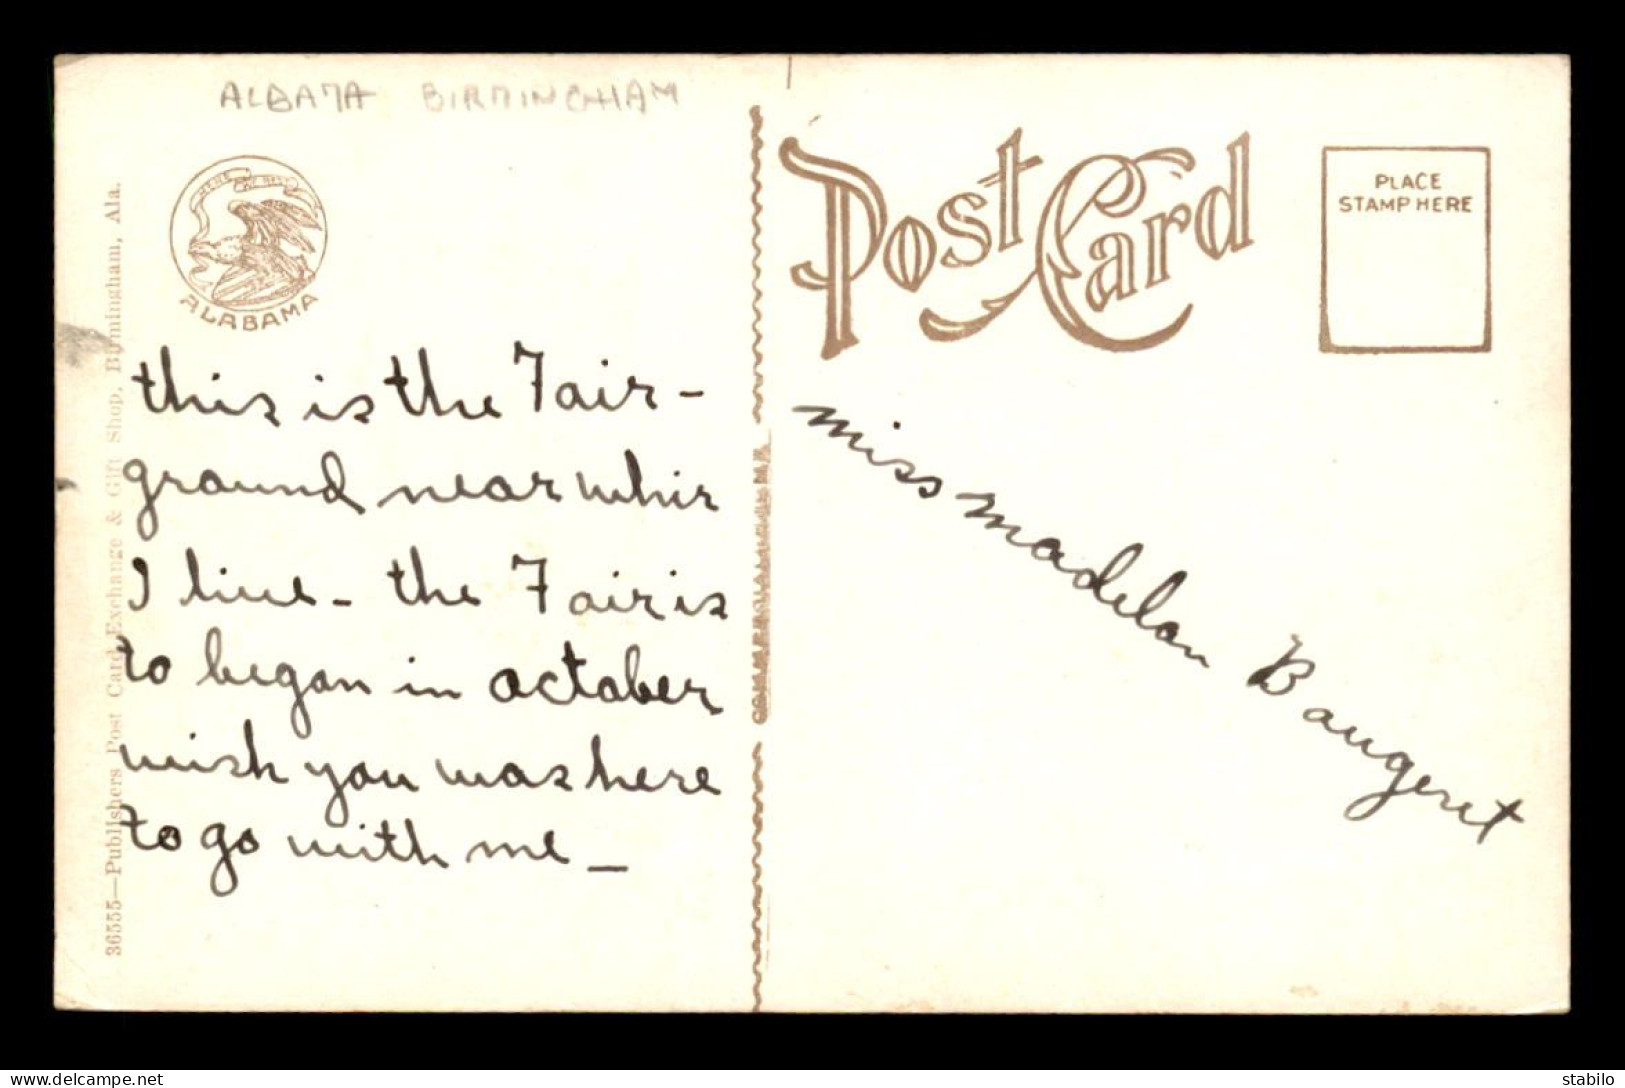 ALBAMA BIRMINGHAM
HERE WE REST
ALABAMA
this is the Fair-
ground near whir
I live - the Fair is
to began in october
wish you was here
to go with me -
36555—Publishers Post Card Exchange & Gift Shop, Birmingham, Ala.
COMMERCIALCHROME
Post Card
PLACE
STAMP HERE
miss madelon Baugert